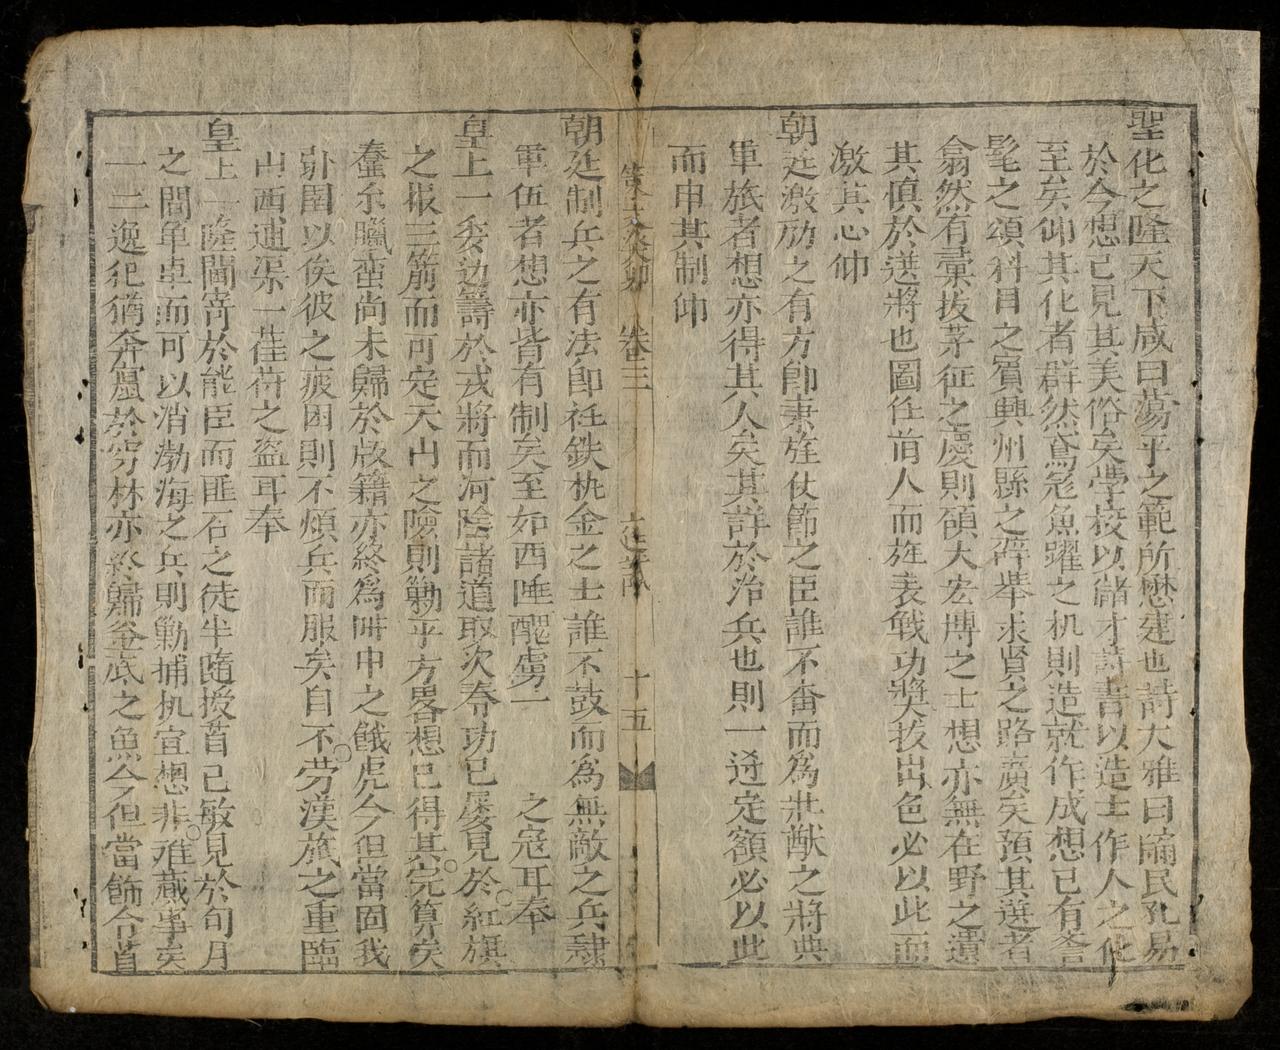 聖化之隆天下咸曰蕩平之範所懋建也詩大雅曰牖民孔易
於今想已見其美俗矣學校以儲才詩書以造士作人之化
至矣仰其化者群然鳶飛魚躍之机則造就作成想已有譽
髦之頌科目之賓興州縣之辟舉求賢之路廣矣預其選者
翕然有彙拔茅征之慶則碩大宏博之士想亦無在野之遺
其慎於選將也圖任前人而旌表戰功奬拔出色必以此而
激其心仰
朝廷激勵之有方即秉旄仗節之臣誰不奮而為壯猷之將典
軍旅者想亦得其人矣其詳於治兵也則一遵定額必以此
而申其制仰
卷三
十五
朝廷制兵之有法即衽鉄枕金之士誰不鼓而為無敵之兵隸
軍伍者想亦皆有制矣至如西陲醜虜一之寇耳奉
皇上一委边籌於戎將而河陰諸道取次奏功已屡見於紅旗
之報三箭而可定天山之險則勦平方畧想已得其完算矣
蠢尒臘蛮尚未歸於版籍亦終為阱中之餓虎今但當固我
卧圉以俟彼之疲困則不煩兵而服矣自不労漢旄之重臨
山西逋渠一萑苻之盜耳奉
皇上一隆閫寄於能臣而匪石之徒半隨授首已敏見於旬月
之間单車而可以消渤海之兵則勦捕机宜想非难蕆事矣
一二逸犯猶奔竄於窮林亦終歸釜底之魚今但當飾令首